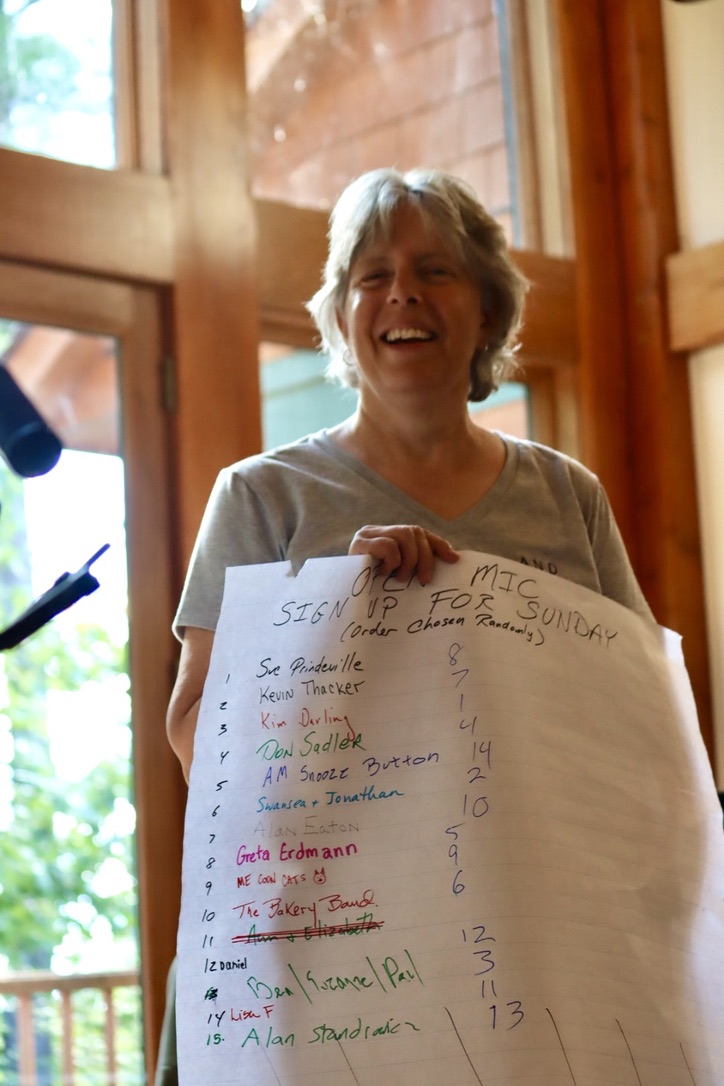 AND
OPEN MIC
SIGN UP FOR SUNDAY
(Order Chosen Randomly)
1 Sue Prindeville 8
2 Kevin Thacker 7
3 Kim Darling 1
4 Don Sadler 4
5 AM Snooze Button 14
6 Swansea + Jonathan 2
7 Alan Eaton 10
8 Greta Erdmann 5
9 ME COON CATS 9
10 The Bakery Band 6
11 Ann & Elizabeth
12 Daniel 12
Ben/Suzanne/Paul 3
14 Lisa F 11
15. Alan 13